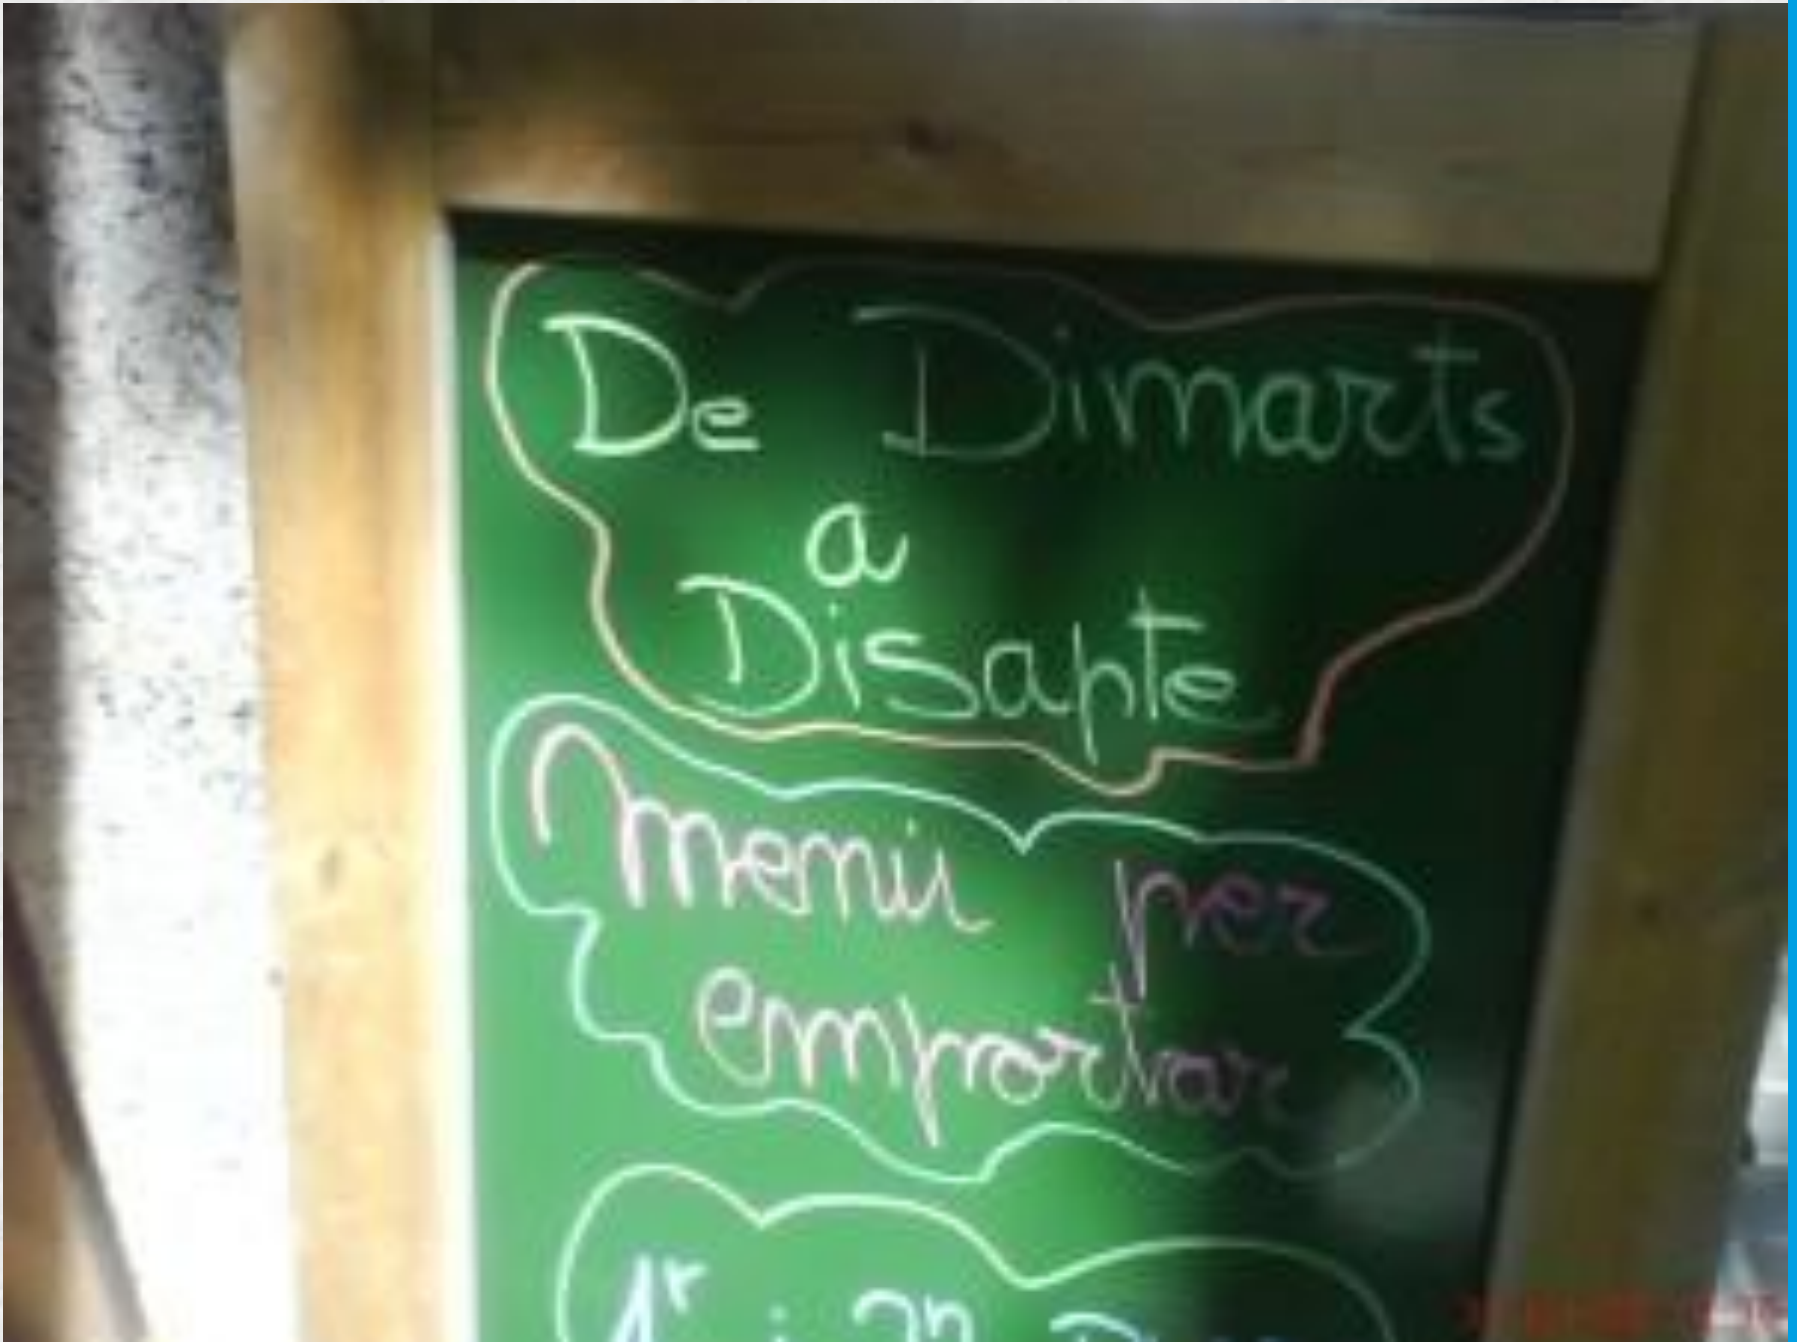 De Dimarts
a
Disapte
Menú per
emportar
1r i 2n